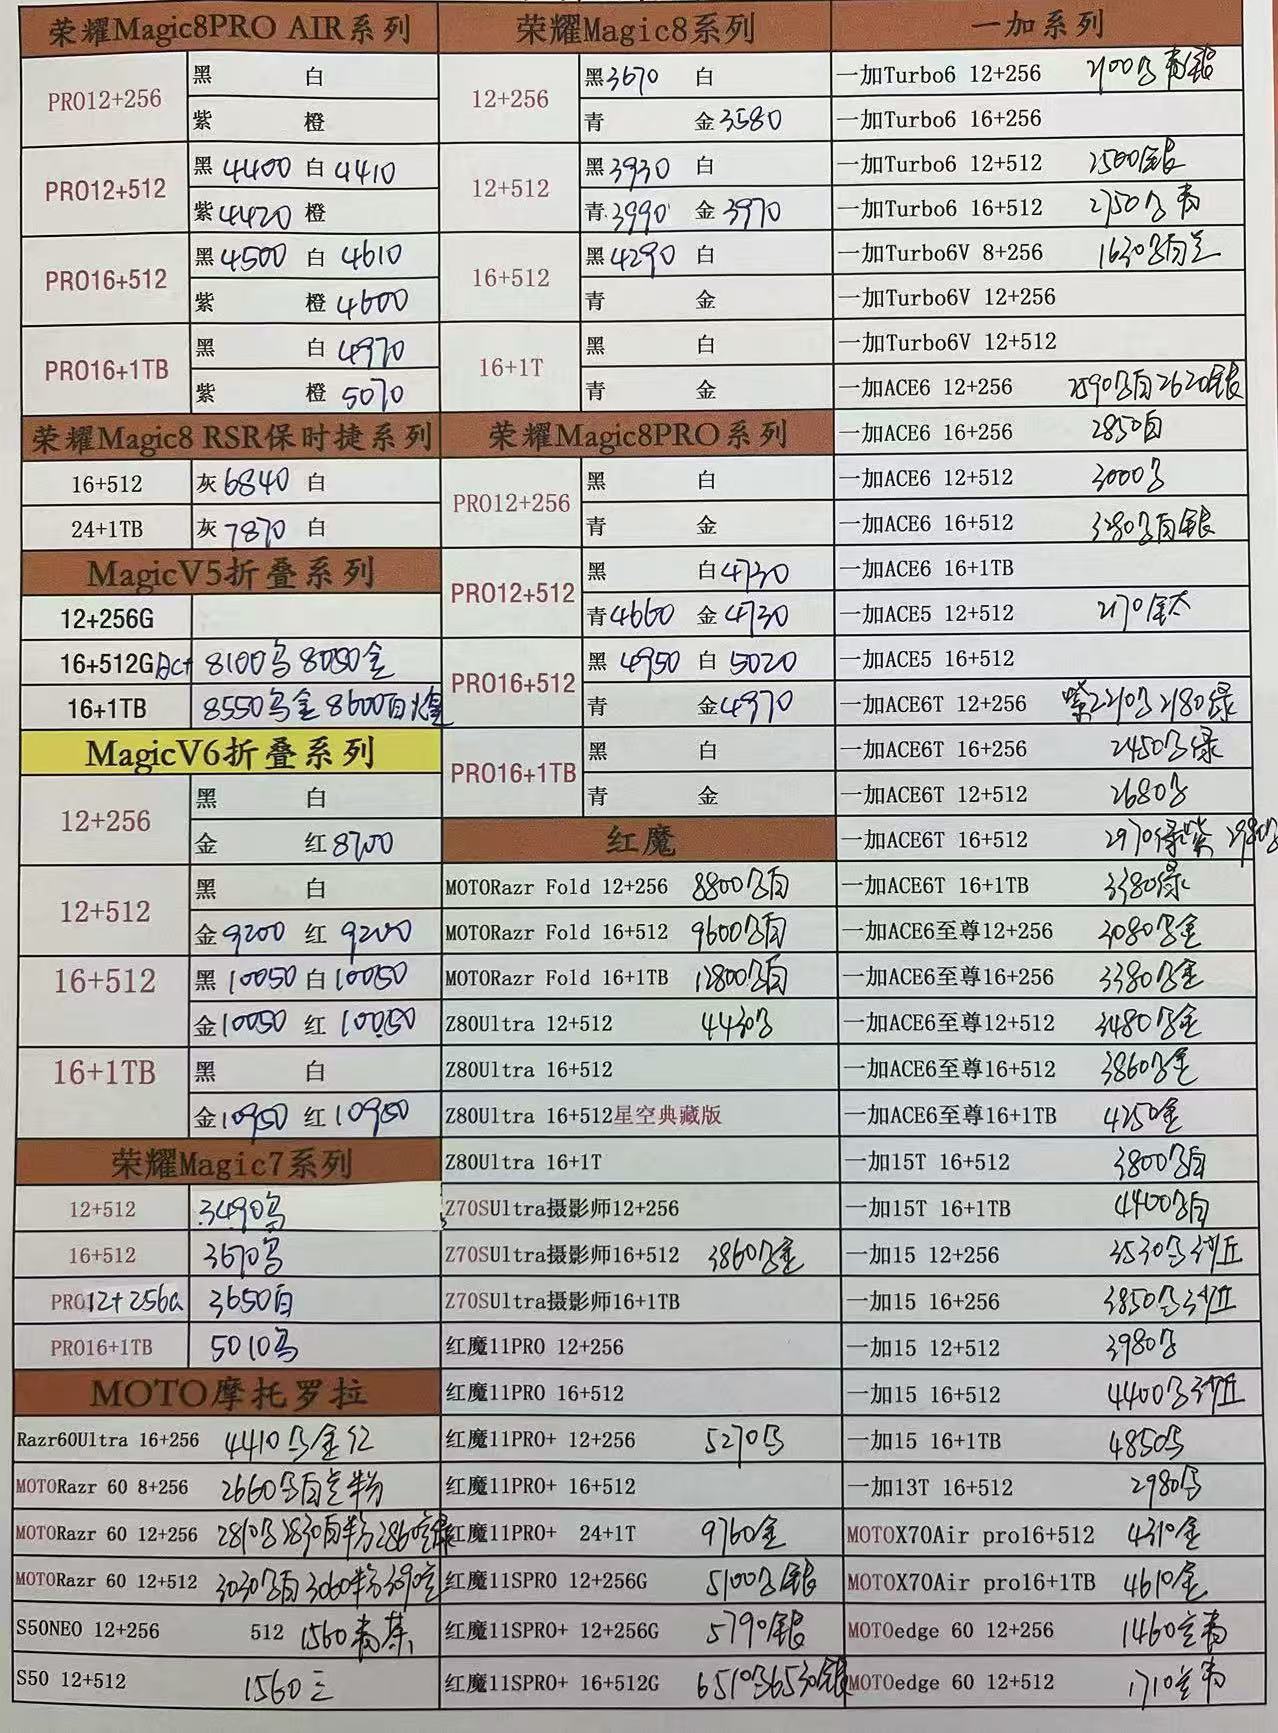 荣耀Magic8PRO AIR系列
PRO12+256 黑 白
紫 橙
PRO12+512 黑 4400 白 4410
紫 4420 橙
PRO16+512 黑 4500 白 4610
紫 橙 4600
PRO16+1TB 黑 白 4970
紫 橙 5070
荣耀Magic8 RSR保时捷系列
16+512 灰 6840 白
24+1TB 灰 7870 白
MagicV5折叠系列
12+256G
16+512G 8100乌 8050金
16+1TB 8550乌金 8600白
MagicV6折叠系列
12+256 黑 白
金 红 8700
12+512 黑 白
金 9200 红 9200
16+512 黑 10050 白 10050
金 10050 红 10050
16+1TB 黑 白
金 10950 红 10950
荣耀Magic7系列
12+512 3490乌
16+512 3670乌
PRO12+256G 3650白
PRO16+1TB 5010乌
MOTO摩托罗拉
Razr60Ultra 16+256 4410乌金红
MOTORazr 60 8+256 2660乌白 粉
MOTORazr 60 12+256 2810乌 2830白粉 2860
MOTORazr 60 12+512 3030乌白 3060粉 3090
S50NEO 12+256 512 1560青茶
S50 12+512 1560三
荣耀Magic8系列
12+256 黑 3670 白
青 金 3580
12+512 黑 3930 白
青 3990 金 3970
16+512 黑 4290 白
青 金
16+1T 黑 白
青 金
荣耀Magic8PRO系列
PRO12+256 黑 白
青 金
PRO12+512 黑 白 4730
青 4660 金 4730
PRO16+512 黑 4950 白 5020
青 金 4970
PRO16+1TB 黑 白
青 金
红魔
MOTORazr Fold 12+256 8800乌白
MOTORazr Fold 16+512 9600乌白
MOTORazr Fold 16+1TB 12800乌白
Z80Ultra 12+512 4430乌
Z80Ultra 16+512
Z80Ultra 16+512星空典藏版
Z80Ultra 16+1T
Z70SUltra摄影师12+256
Z70SUltra摄影师16+512 3860乌金
Z70SUltra摄影师16+1TB
红魔11PRO 12+256
红魔11PRO 16+512
红魔11PRO+ 12+256 5270乌
红魔11PRO+ 16+512
红魔11PRO+ 24+1T 9760金
红魔11SPRO 12+256G 5100乌银
红魔11SPRO+ 12+256G 5790银
红魔11SPRO+ 16+512G 6510乌6530银
一加系列
一加Turbo6 12+256 2100乌青银
一加Turbo6 16+256
一加Turbo6 12+512 2500银
一加Turbo6 16+512 2750乌青
一加Turbo6V 8+256 1630乌白兰
一加Turbo6V 12+256
一加Turbo6V 12+512
一加ACE6 12+256 2590乌白2620银
一加ACE6 16+256 2850白
一加ACE6 12+512 3000乌
一加ACE6 16+512 3280乌白银
一加ACE6 16+1TB
一加ACE5 12+512 2170金太
一加ACE5 16+512
一加ACE6T 12+256 紫2210乌2180绿
一加ACE6T 16+256 2450乌绿
一加ACE6T 12+512 2680乌
一加ACE6T 16+512 2970绿紫 2980乌
一加ACE6T 16+1TB 3380绿
一加ACE6至尊12+256 3080乌金
一加ACE6至尊16+256 3380乌金
一加ACE6至尊12+512 3480乌金
一加ACE6至尊16+512 3860乌金
一加ACE6至尊16+1TB 4250金
一加15T 16+512 3800乌白
一加15T 16+1TB 4400乌白
一加15 12+256 3530乌沙丘
一加15 16+256 3850乌沙丘
一加15 12+512 3980乌
一加15 16+512 4400乌沙丘
一加15 16+1TB 4850乌
一加13T 16+512 2980乌
MOTOX70Air pro16+512 4310金
MOTOX70Air pro16+1TB 4610金
MOTOedge 60 12+256 1460 青
MOTOedge 60 12+512 1710 青